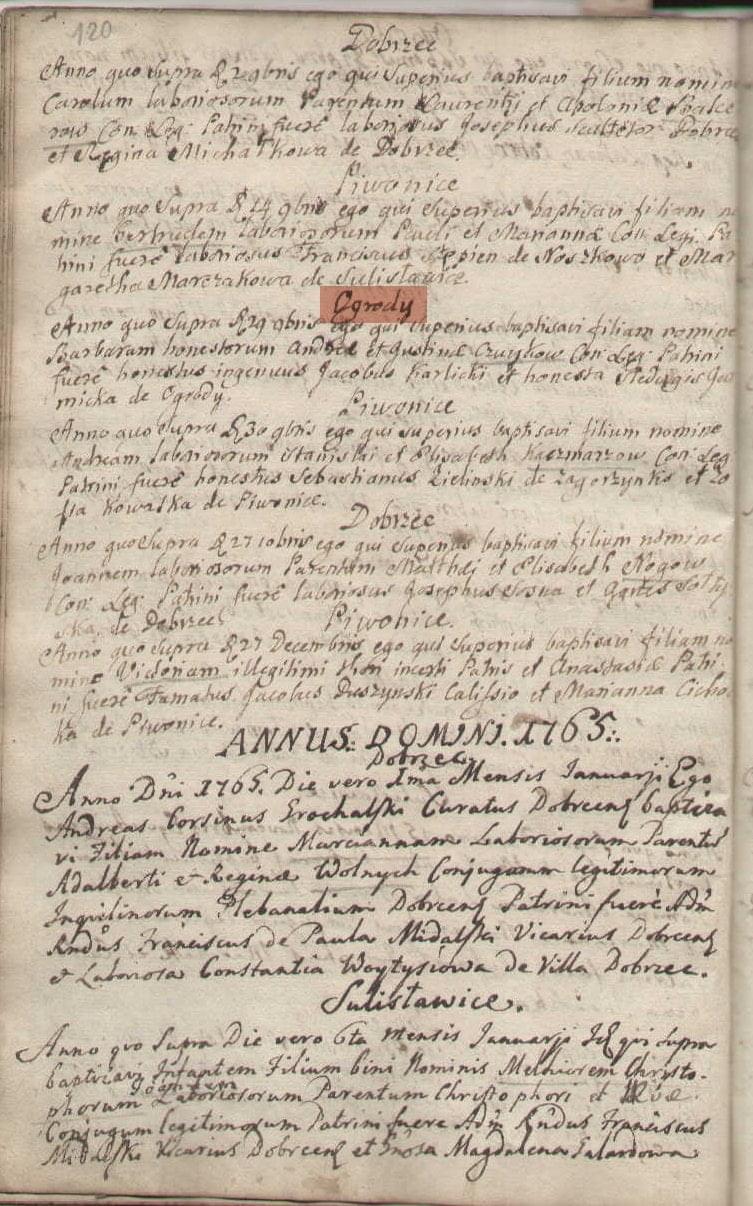 120
Dobrzec
Anno quo Supra D 2 9bris ego qui Superius baptisavi filium nomine
Carolum laboriosorum Parentum Laurentij et Apoloniæ
Con: Leg: Patrini fuerê laboriosus Josephus de Dobrze
et Regina Michałkowa de Dobrzec.
Piwonice
Anno quo Supra D 14 9bris ego qui Superius baptisavi filiam no
mine Gertrudem laboriosorum Pauli et Mariannæ Con: Legi: Pa
trini fuerê laboriosus Franciscus Szepien de Noszkowo et Mar
garetha Marczakowa de Sulisławic
Ogrody
Anno quo Supra D 29 9bris ego qui Superius baptisavi filiam nomine
Barbaram honestorum Andreæ et Justinæ Con: Leg: Patrini
fuerê honestus ingenuus Jacobus Karlicki et honesta Hedvigis
micka de Ogrody.
Piwonice
Anno quo Supra D 30 9bris ego qui superius baptisavi filium nomine
Andream laboriosorum Stanislai et Elisabeth Kaczmarzow Con: Leg
Patrini fuerê honestus Sebastianus Zielinski de Zagorzynkis et Zo
fia Kowalka de Piwonice.
Dobrzec
Anno quo Supra D 27 10bris ego qui Superius baptisavi filium nomine
Joannem laboriosorum Parentum Matthæi et Elisabeth Rogow
Con: Leg: Patrini fuerê laboriosus Josephus Sosna et Agnes Sołty
ska de Dobrzec
Piwonice.
Anno quo Supra D 27 Decembris ego qui Superius baptisavi filiam no
mine Victoriam illegitimi thori incerti Patris et Anastasiæ Patri
ni fuerê Famatus Jacobus Duszynski Calissio et Marianna Cicho
ka de Piwonice.
ANNUS: DOMINI. 1765:.
Dobrzec.
Anno Dñi 1765. Die vero 1ma Mensis Januarji Ego
Andreas Corsinus Grochalski Curatus Dobrcens baptiza
vi Filiam Nomine Mariannam Laboriosorum Parentũ
Adalberti et Reginæ Wolnych Conjugum legitimorum
Inquilinorum Plebanalium Dobrcens Patrini fuerè Adm̃
Rndũs Franciscus de Paula Midalski Vicarius Dobrcens
et Laboriosa Constantia Woytysiowa de Villa Dobrzec.
Sulisławice.
Anno quo Supra Die vero 6ta mensis Januarji Id qui supra
baptizavi Infantem Filium bini Nominis Melchiorem Christo-
phorum Laboriosorum Parentum Christophori et Evæ
Conjugum legitimorum Patrini fuere Adm̃ Rñdus Franciscus
Midalski Vicarius Dobrcens et Gñosa Magdalena